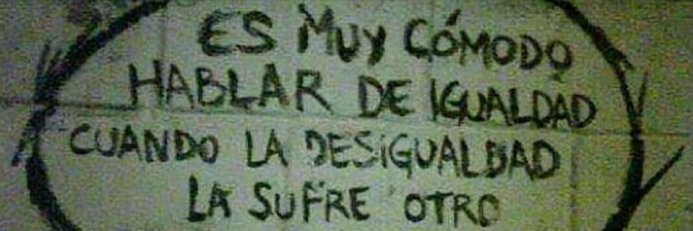 ES MUY CÓMODO
HABLAR DE IGUALDAD
CUANDO LA DESIGUALDAD
LA SUFRE OTRO